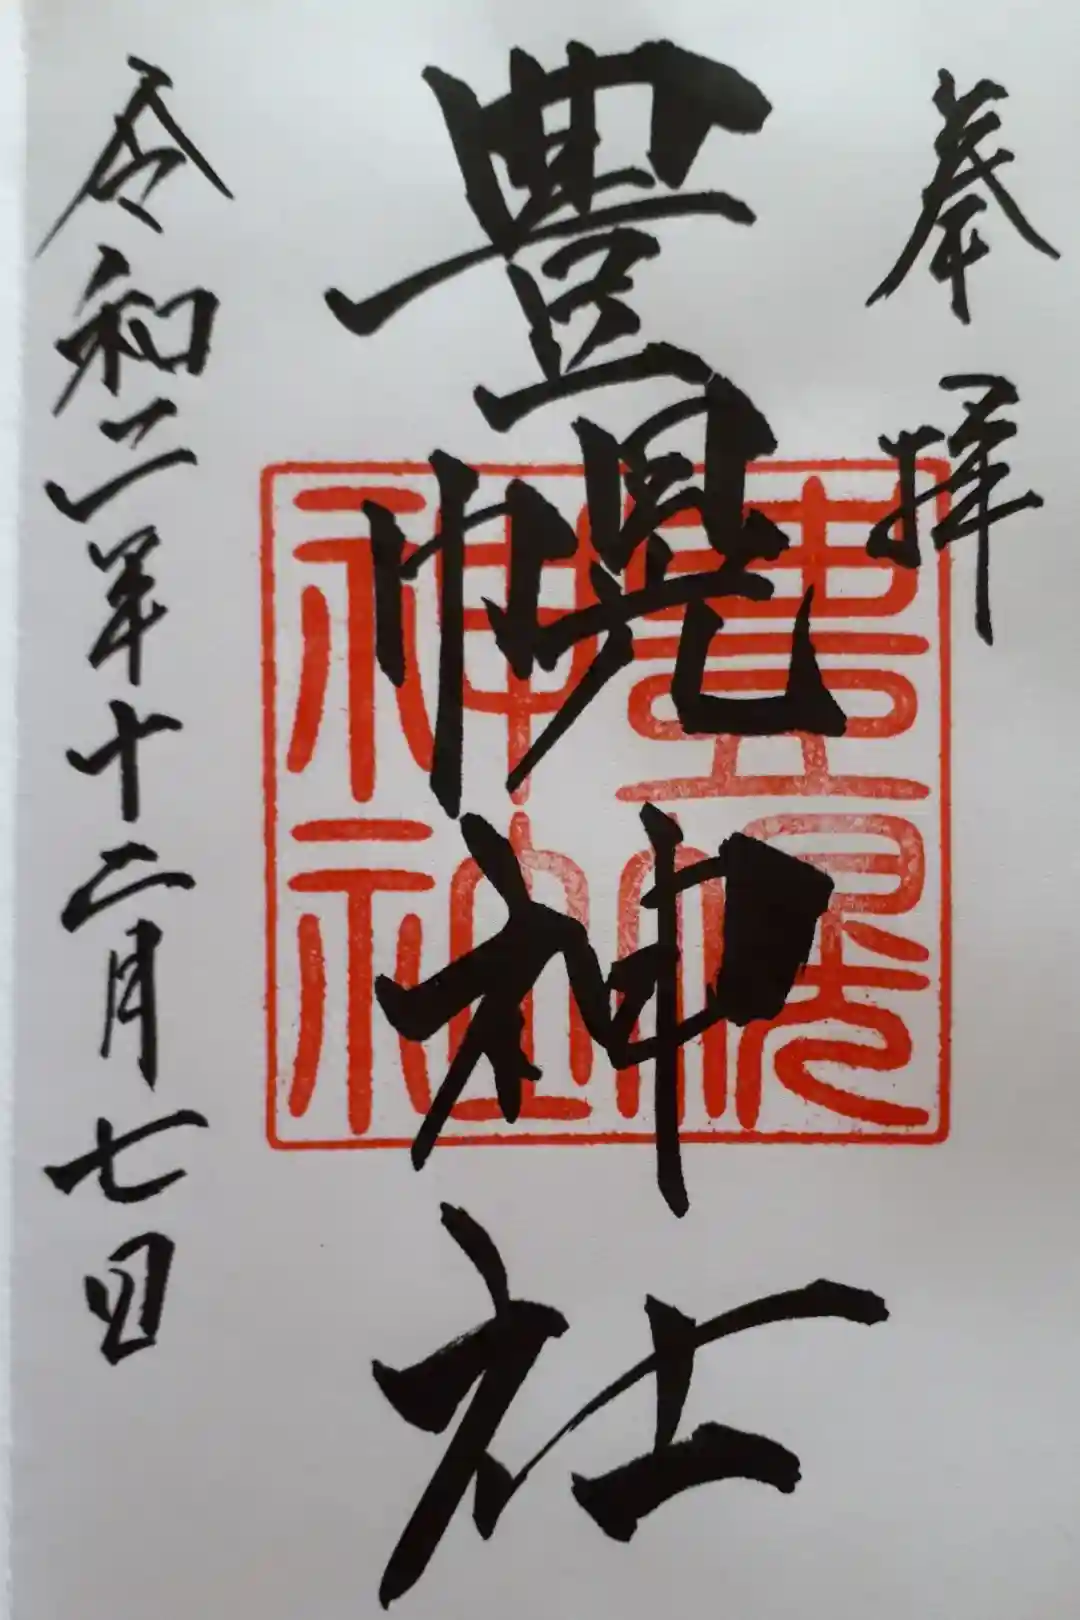 奉拝
豊幌神社
豊幌
神社
令和二年十二月七日